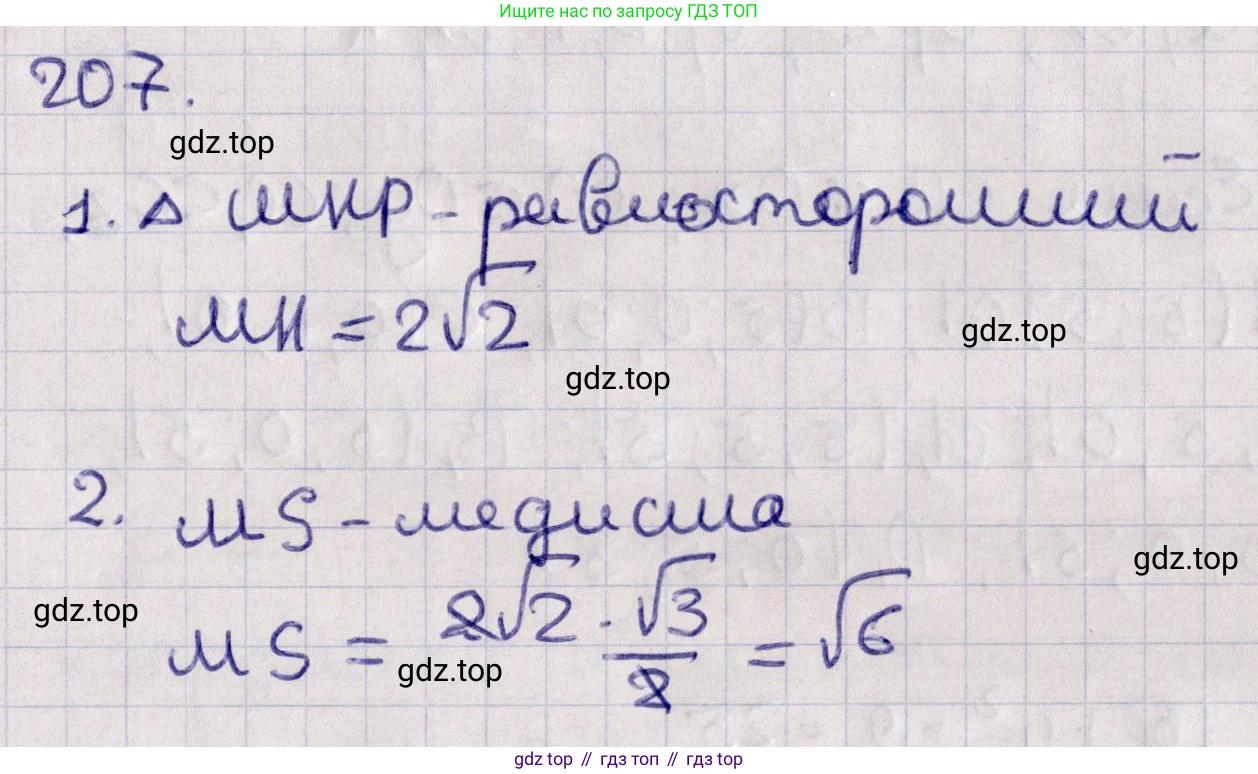 Ищите нас по запросу ГДЗ ТОП
207.
gdz.top
1. △ МКР - равносторонний
МК = 2√2
gdz.top
gdz.top
2. MS - медиана
gdz.top
gdz.top
MS = 2√2 · √3/2 = √6
gdz.top
gdz top // гдз топ // гдз top